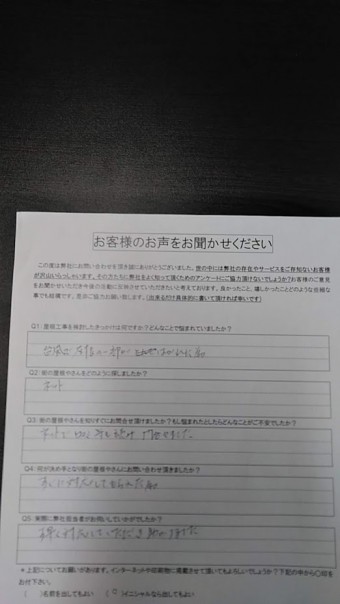 お客様のお声をお聞かせください
この度は弊社にお問い合わせを頂き誠にありがとうございました。世の中には弊社の存在やサービスをご存知ないお客様
が沢山いらっしゃいます。その方たちに弊社をよく知って頂くためのアンケートにご協力頂けないでしょうか？お客様のご意見
をお聞かせいただき今後の活動に反映させていただきたいと考えております。良かったこと、嬉しかったことどのような些細な
事でも結構です。是非ご協力お願い致します。（出来るだけ具体的に書いて頂ければ幸いです）
Q1：屋根工事を検討したきっかけは何ですか？どんなことで悩まれていましたか？
台風で
Q2：街の屋根やさんをどのように探しましたか？
ネット
Q3：街の屋根やさんを知りすぐにお問合せ頂けましたか？もし悩まれたとしたらどんなことがご不安でしたか？
ネットで
Q4：何が決め手となり街の屋根やさんにお問い合わせ頂きましたか？
すぐに対応してもらえた為
Q5：実際に弊社担当者がお伺いしていかがでしたか？
対応していただき助かりました
＊上記についてお願いがあります。インターネットや印刷物に掲載させて頂いてもよろしいでしょうか？下記の中から〇印を
お付下さい。
（　）名前を出してもよい　（〇）イニシャルなら出してもよい